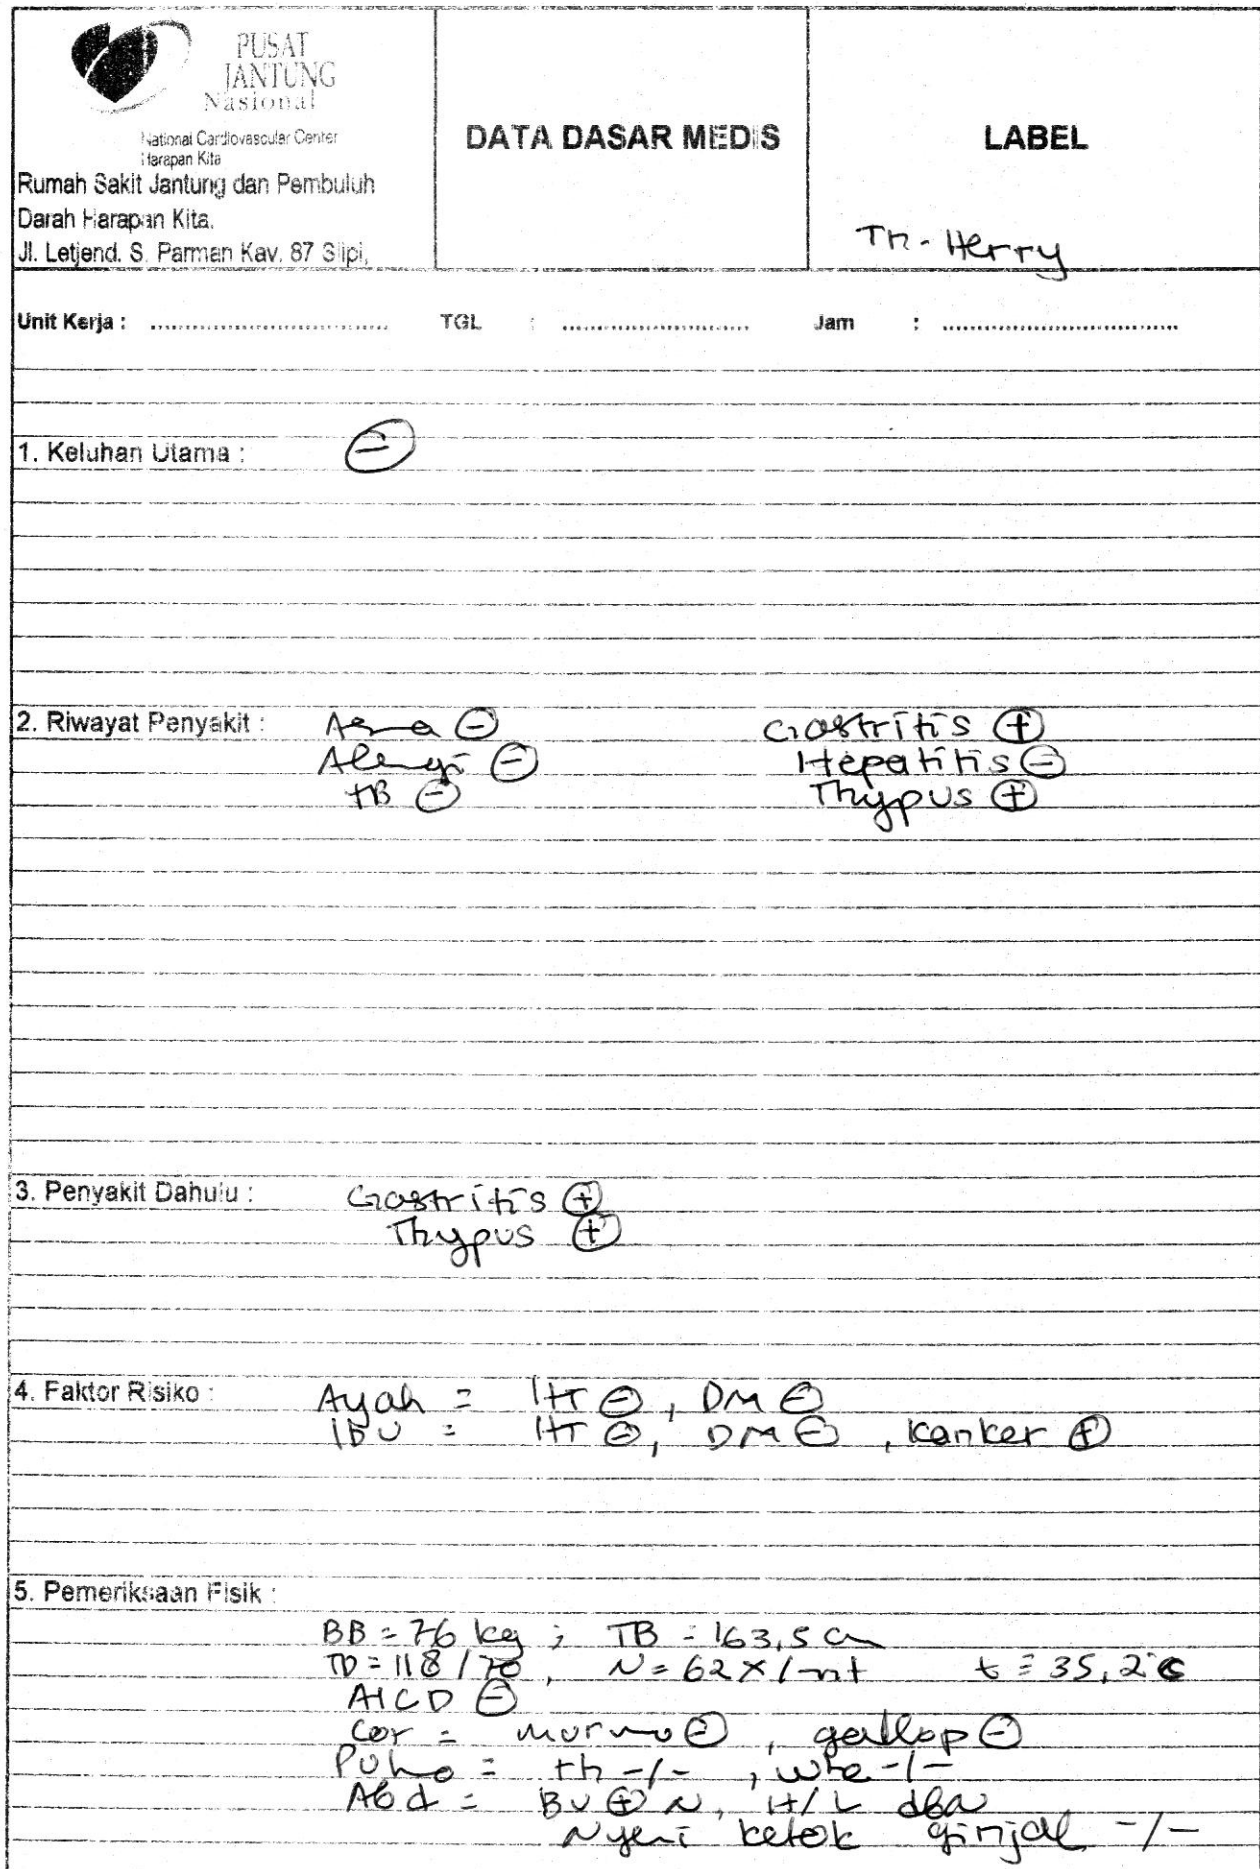 PUSAT
JANTUNG
Nasional
National Cardiovascular Center
Harapan Kita
Rumah Sakit Jantung dan Pembuluh
Darah Harapan Kita.
Jl. Letjend. S. Parman Kav. 87 Slipi,
DATA DASAR MEDIS
LABEL
Tn. Herry
Unit Kerja : TGL : Jam :
1. Keluhan Utama : ⊖
2. Riwayat Penyakit : Asma ⊖ Gastritis ⊕
Alergi ⊖ Hepatitis ⊖
TB ⊖ Thypus ⊕
3. Penyakit Dahulu : Gastritis ⊕
Thypus ⊕
4. Faktor Risiko : Ayah = HT ⊖, DM ⊖
IBU = HT ⊖, DM ⊖, kanker ⊕
5. Pemeriksaan Fisik :
BB = 76 kg ; TB = 163,5 cm
TD = 118/70, N = 62x/mt t = 35,2°C
AICD ⊖
Cor = murmu ⊖, gallop ⊖
Pulmo = rh -/-, whe -/-
Abd = BU ⊕ N, H/L dbn
Nyeri ketok ginjal -/-